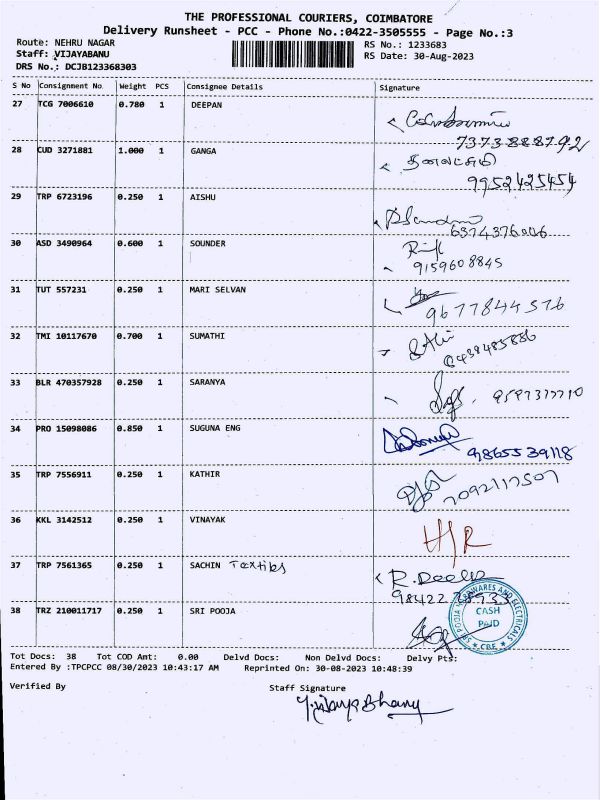 THE PROFESSIONAL COURIERS, COIMBATORE
Delivery Runsheet - PCC - Phone No.:0422-3505555 - Page No.:3
Route: NEHRU NAGAR
RS No.: 1233683
Staff: VIJAYABANU
RS Date: 30-Aug-2023
DRS No.: DCJB123368303
S No Consignment No Weight PCS Consignee Details Signature
27 TCG 7006610 0.780 1 DEEPAN
7373888792
28 CUD 3271881 1.000 1 GANGA
9952425454
29 TRP 6723196 0.250 1 AISHU
6374376006
30 ASD 3490964 0.600 1 SOUNDER
9159608845
31 TUT 557231 0.250 1 MARI SELVAN
9677844576
32 TMI 10117670 0.700 1 SUMATHI
33 BLR 470357928 0.250 1 SARANYA
34 PRO 15098086 0.850 1 SUGUNA ENG
9865539118
35 TRP 7556911 0.250 1 KATHIR
7092117507
36 KKL 3142512 0.250 1 VINAYAK
H/R
37 TRP 7561365 0.250 1 SACHIN Textiles
38 TRZ 210011717 0.250 1 SRI POOJA
CASH
PAID
Tot Docs: 38 Tot COD Amt: 0.00 Delvd Docs: Non Delvd Docs: Delvy Pts:
Entered By :TPCPCC 08/30/2023 10:43:17 AM Reprinted On: 30-08-2023 10:48:39
Verified By
Staff Signature